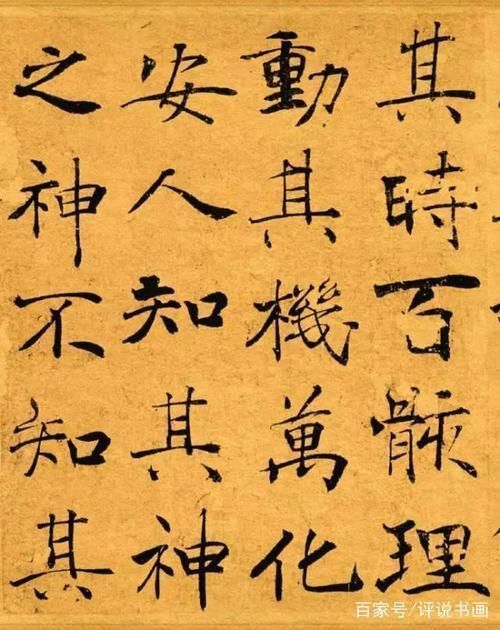 其時百骸理
動其機萬化
安人知其神
之神不知其
百家号/评说书画